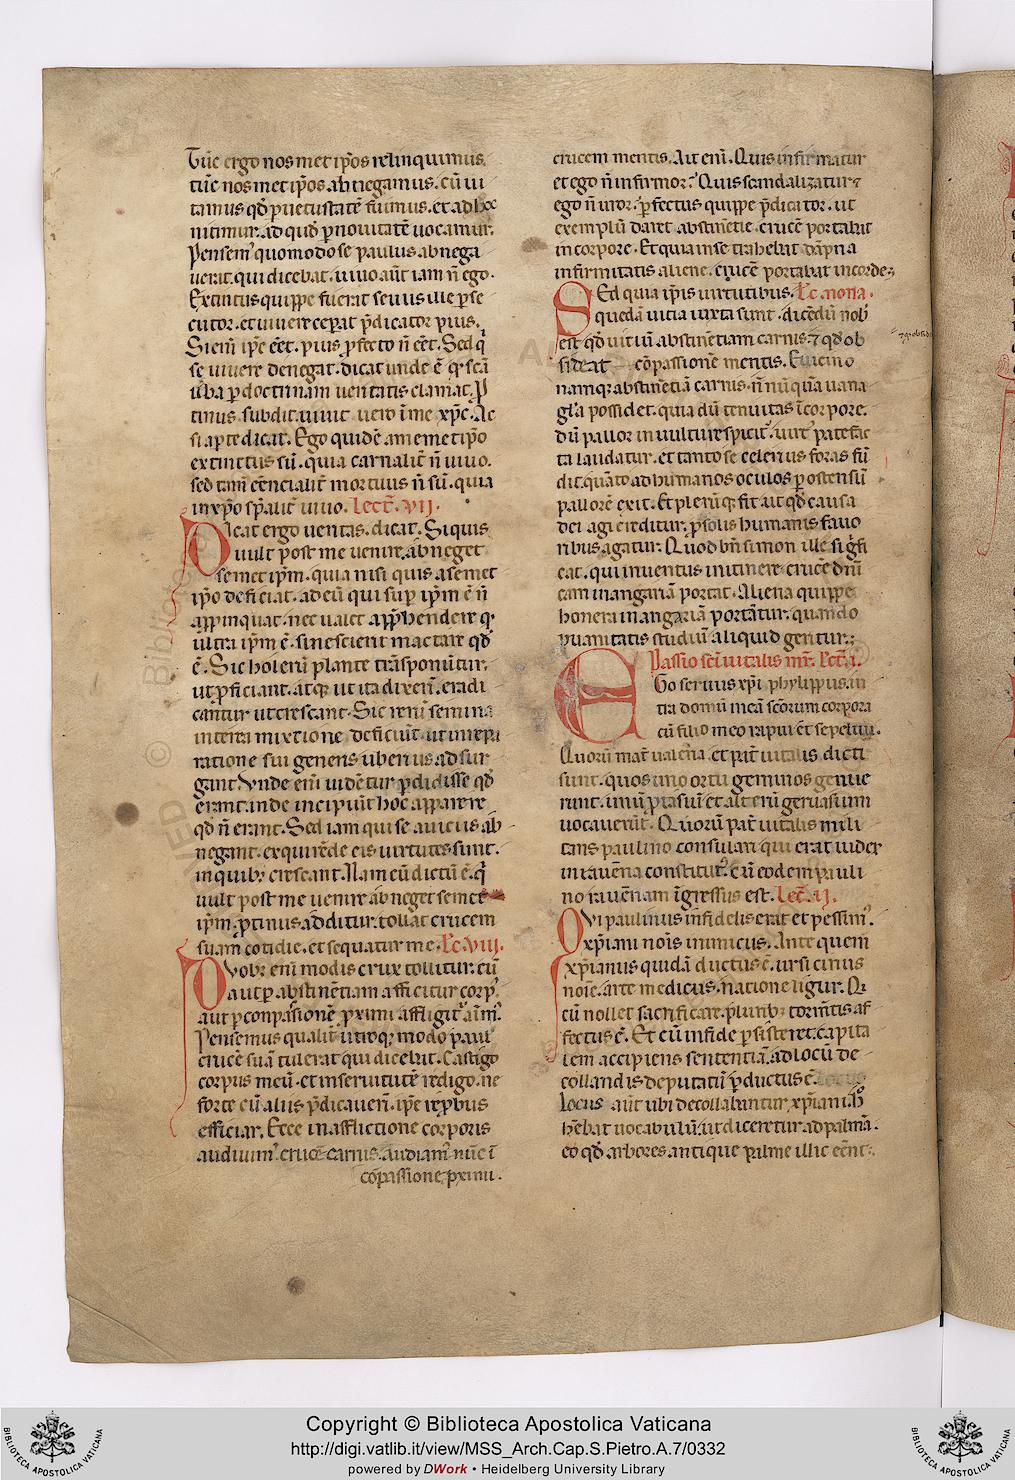 Tūc ergo nos met ip̄os relinquimus
tūc nos met ip̄os abnegamus. cū ui
tamus qd̄ p̄ uetustatē fuimus. et ad hoc
nitimur. ad quod p̄ nouitatē uocamur.
Pensem' quomodo se paulus abnega
uerat. qui dicebat. uiuo aūt iam n̄ ego.
Extinctus quippe fuerat seuus ille p̄se
cutor. et uiuere ceperat p̄dicator pius.
Si enī ip̄e eēt. pius profecto n̄ eēt. Sed q̄
se uiuere denegat. dicat unde ē q̄ scā
uba p̄ doctrinam ueritatis clamat. P
tinus subdit. uiuit uero ī me xp̄c. Ac
si ap̄te dicat. Ego quidē a memetip̄o
extinctus sū. quia carnalit̄ n̄ uiuo.
sed tam̄ eēncialit̄ mortuus n̄ sū. quia
in xp̄o sp̄alit̄ uiuo. Lect̄. VII.
Dicat ergo ueritas. dicat. Si quis
uult post me uenire. abneget
semet ip̄m. quia nisi quis a semet
ip̄o deficiat. ad eū qui sup̄ ip̄m ē n̄
app̄pinquat. nec ualet app̄hendere q'
ultra ip̄m ē. si nescierit mactare qd̄
ē. Sic holerū plante trāsponūtur.
ut p̄ficiant. atq; ut ita dixerī. eradi
cantur ut crescant. Sic rerū semina
in terra mixtione deficiūt. ut in repa
ratione sui generis uberius ad sur
gant. Unde enī uidētur p̄didisse qd̄
erant. inde incipiūt hoc apparere
qd̄ n̄ erant. Sed iam qui se a uicus ab
negant. exquirēde eis uirtutes sunt.
in quib; crescant. Nam cū dictū ē. q̄
uult post me uenire abneget semet
ip̄m. protinus additur. tollat crucem
suam cotidie. et sequatur me. Lc̄. VIII.
Duob; enī modis crux tollitur. cū
aut p̄ abstinētiam afficitur corp'.
aut p̄ conpasionē proximi affligit' anim'.
Pensemus qualit̄ utroq; modo paul'
crucē suā tulerat qui dicebat. Castigo
corpus meū. et in seruitutē redigo. ne
forte cū aliis p̄dicauerī. ip̄e rep̄bus
efficiar. Ecce in afflictione corporis
audiuim' crucē carnis. audiam' nūc ī
cōpassione p̄ximi.
crucem mentis. Ait enī. Quis infirmatur
et ego n̄ infirmor? Quis scandalizatur
ego n̄ uror. p̄fectus quippe p̄dicator. ut
exemplū daret abstinētie. crucē portabat
in corpore. Et quia in se trahebat dāpna
infirmitatis aliene. crucē portabat in corde;
Sed quia ip̄is uirtutibus. Lc̄. nona.
quedā uitia iuxta sunt. dicēdū nob'
est qd̄ uitiū abstinētiam carnis. ⁊ qd̄ ob
sideat cōpassionē mentis. E uicino
namq; abstinētiā carnis. n̄ nūquā uana
gl̄a possidet. quia dū tenuitas ī corpore.
dū pallor in uultu respicit'. uirt' patefac
ta laudatur. et tanto se celerius foras fū
dit. quāto ad humanos oculos p̄ ostensū
pallorē exit. Et plerūq; fit. ut qd̄ causa
dei agi creditur. p̄ solis humanis fauo
ribus agatur. Quod bn̄ simon ille sigfi
cat. qui inuentus in itinere. crucē dn̄i
cam in angariā portat. Aliena quippe
honera in angariā portātur. quando
p uanitatis studiū aliquid geritur.
Passio scī uitalis mr̄. Lect̄. I.
Ego seruus xp̄i phylippus. in
tra domū meā scōrum corpora
cū filio meo rapui et sepeliui.
Quorū mat̄ ualeria. et pat̄ uitalis dicti
sunt. quos uno ortu geminos genue
runt. unū p̄tasiū et alt̄erū geruasium
uocauerūt. Quorum pat̄ uitalis mili
tans paulino consulari qui erat iudex
in rauēna constitut'. cū eodem pauli
no rauēnam īgressus est. Lec̄. II.
Qui paulinus infidelis erat et pessim'.
xp̄iani noīs inimicus. Ante quem
xp̄ianus quidā ductus ē. ursicinus
noīe. arte medicus. natione ligur. Q
cū nollet sacrificare. plurib; torm̄tis af
fectus ē. Et cū in fide p̄sisteret. capita
lem accipiens sententiā. ad locū de
collandis deputatū p̄ductus ē.
Locus aūt ubi decollabantur xp̄iani. h̄
hēbat uocabulū. ut diceretur ad palmā.
eo qd̄ arbores antique palme illic eēnt.
Copyright © Biblioteca Apostolica Vaticana
http://digi.vatlib.it/view/MSS_Arch.Cap.S.Pietro.A.7/0332
powered by DWork • Heidelberg University Library
BIBLIOTECA APOSTOLICA VATICANA
BIBLIOTECA APOSTOLICA VATICANA